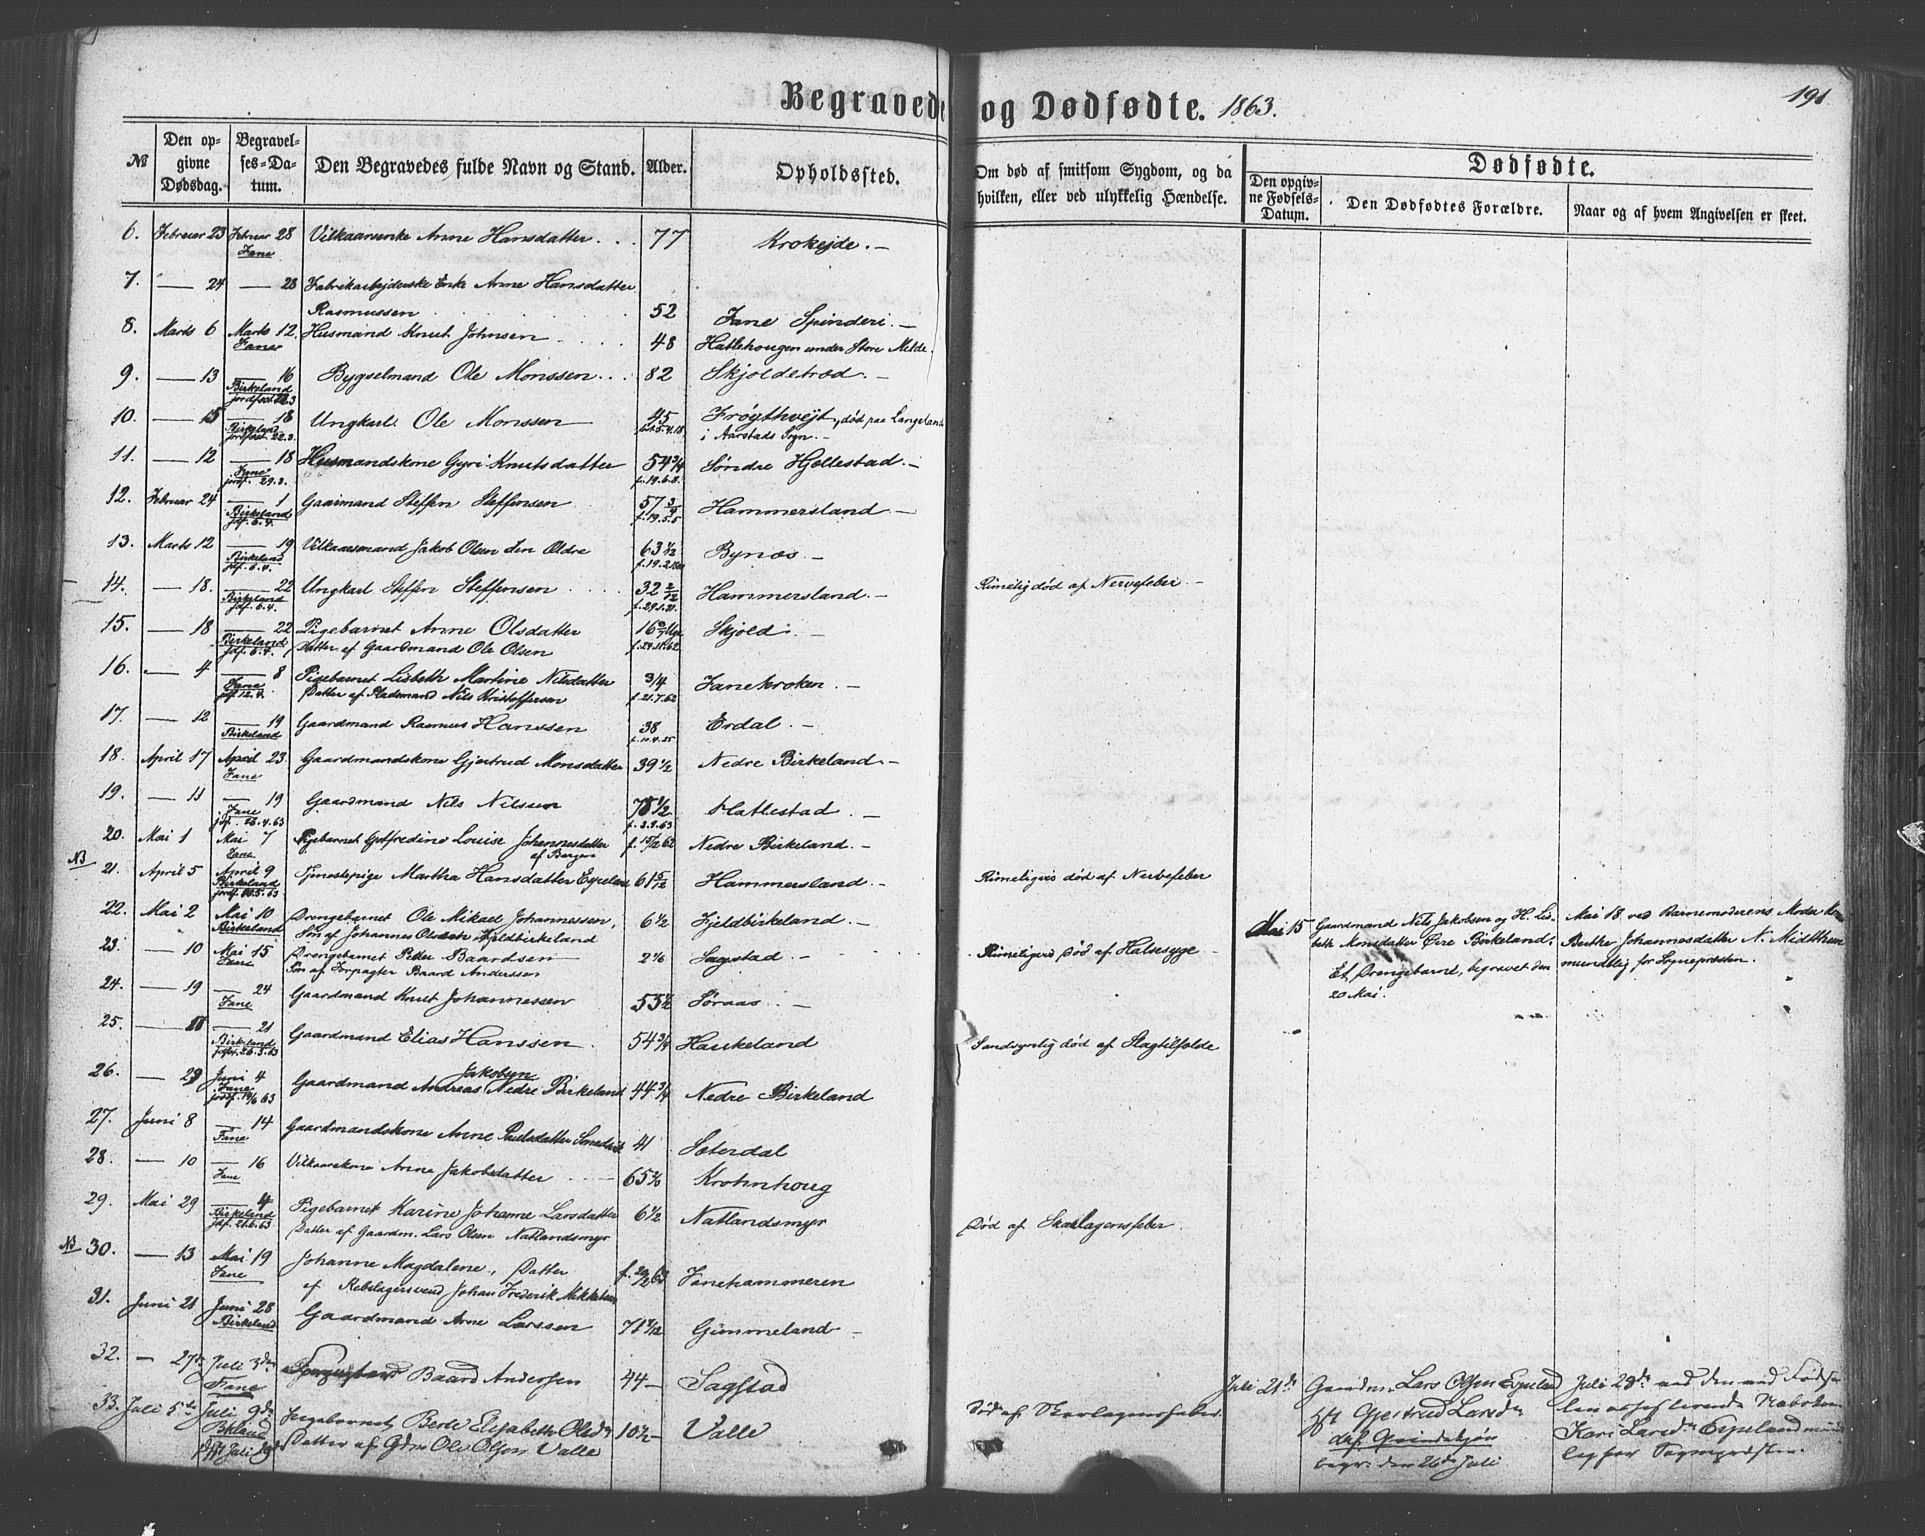 Begravede og Dødfødte. 1863.
191
№
Den opgivne Dødsdag.
Begravelses-Datum.
Den Begravedes fulde Navn og Stand.
Alder.
Opholdssted.
Om død af smitsom Sygdom, og da hvilken, eller ved ulykkelig Hændelse.
Dødfødte.
Den opgivne Fødsels-Datum.
Den Dødfødtes Forældre.
Naar og af hvem Angivelsen er skeet.
6. Februar 23 Februar 28 Fane Vilkaarsenke Anne Hansdatter 77 Krokejde.
7. — 24 — 28 Fabrikarbejderske Enke Anne Hansdatter
Rasmussen 52 Fane Spinderi.
8. Marts 6 Marts 12 Fane Husmand Knut Johnsen 48 Hatlehougen under Store Milde.
9. — 13 — 16 Birkeland Bygselmand Ole Monssen 82 Skjoldetræd.
10. — 15 — 18 Birkeland jordfæst. 22.3. Ungkarl Ole Monssen 45 Frøythvejt, død paa Langeland
i Aarstads Sogn.
11. — 12 — 18 Fane jordf. 29.3. Husmandskone Gyri Knutsdatter 54 3/4 Søndre Hjellestad.
12. Februar 24 — 1 Birkeland jdf. 6.4. Gaardmand Steffen Steffensen 57 3/4 Hammersland
13. Marts 12 — 19 Birkeland jdf. 6.4. Vilkaarsmand Jakob Olsen den Ældre 63 1/2 Bynæs
14. — 18. — 22 Birkeland jdf. 6.4. Ungkarl Steffen Steffensen 32 2/12 Hammersland. Rimelig død af Nervefeber
15. — 18 — 22 Birkeland jdf. 6.4. Pigebarnet Anne Olsdatter Skjold.
Datter af Gaardmand Ole Olsen
16. — 4 — 8 Fane jdf 12.4. Pigebarnet Lisbeth Martine Nilsdatter 3/4 f. 21.7.62 Fanekroken.
Datter af Pladsmand Nils Kristoffersen
17. — 12 — 19 Birkeland Gaardmand Rasmus Hanssen 38 Erdal.
18. April 17 April 23 Fane Gaardmandskone Gjertrud Monsdatter 39 1/2 Nedre Birkeland
19. — 11 — 19 Fane jdf. 26.4.63 Gaardmand Nils Nilssen Hatlestad
20. Mai 1 Mai 7 Fane Pigebarnet Gotfredine Louise Johannesdatter Nedre Birkeland.
af Bergen
NB 21. April 5 April 9 Birkeland Tjenestepige Martha Hansdatter Espeland 61 5/12 Hammersland. Rimeligvis død af Nervefeber
22. Mai 2 Mai 10 Birkeland Drengebarnet Ole Mikael Johannessen, 6 1/2 Fjeldbirkeland
Søn af Johannes Olsen Fjeldbirkeland
23. — 10 Mai 15 Fane Drengebarnet Peder Baardsen Sagstad. Rimeligvis Død af Halsesyge
Søn af Forpagter Baard Anderssen
24. — 19 — 24 Fane Gaardmand Knut Johannessen 53 1/2 Søraas
25. — 21 Birkeland Gaardmand Elias Hanssen 54 3/4 Haukeland Sandsynlig død af Slagtilfælde
26. — 29 Juni 4 Fane Gaardmand Andreas Jakobsen Nedre Birkeland 44 3/4 Nedre Birkeland
27. Juni 8 — 14 Fane Gaardmandskone Anne Paulsdatter 41 Sæterdal
28. — 10 — 16 Fane Vilkaarskone Anne Jakobsdatter Krohnhoug
29. Mai 29 — 4 Birkeland jdf. 21.6.63 Pigebarnet Karine Johanne Larsdatter 6 1/2 Natlandsmyr Død af Skarlagensfeber.
Datter af Gaardm. Lars Olsen Natlandsmyr
NB 30. — 13 Mai 19 Fane Johanne Magdalene, Datter Fanehammeren
af Rebslagersvend Johan Frederik Mikkelsen
31. Juni 21 Juni 28 Birkeland Gaardmand Arne Larssen Gimmeland
32. — 27de Juli 3die Fane Baard Andersen 44 Sagstad
33. Juli 5te Juli 9de Pigebarnet Berte Elisabeth Olsdr 10 1/2 Valle Død af Skarlagensfeber.
Datter af Gdm Ole Olsen Valle
Mai 15 Gaardmand Nils Jakobsen og H. Lisbeth Monsdatter Øvre Birkeland.
Et Drengebarn, begravet den
20 Mai.
Mai 18 ved Barnemoderens Moder
Berthe Johannesdatter N. Midtthun
mundtlig for Sognepræsten.
Juli 21de Gaardm Lars Olsen Espeland
Gjertrud Larsdr
begr. den 26de Juli
Juli 23de ved den ved Fødselen
Kari Larsdr Espeland
for Sognepræsten.